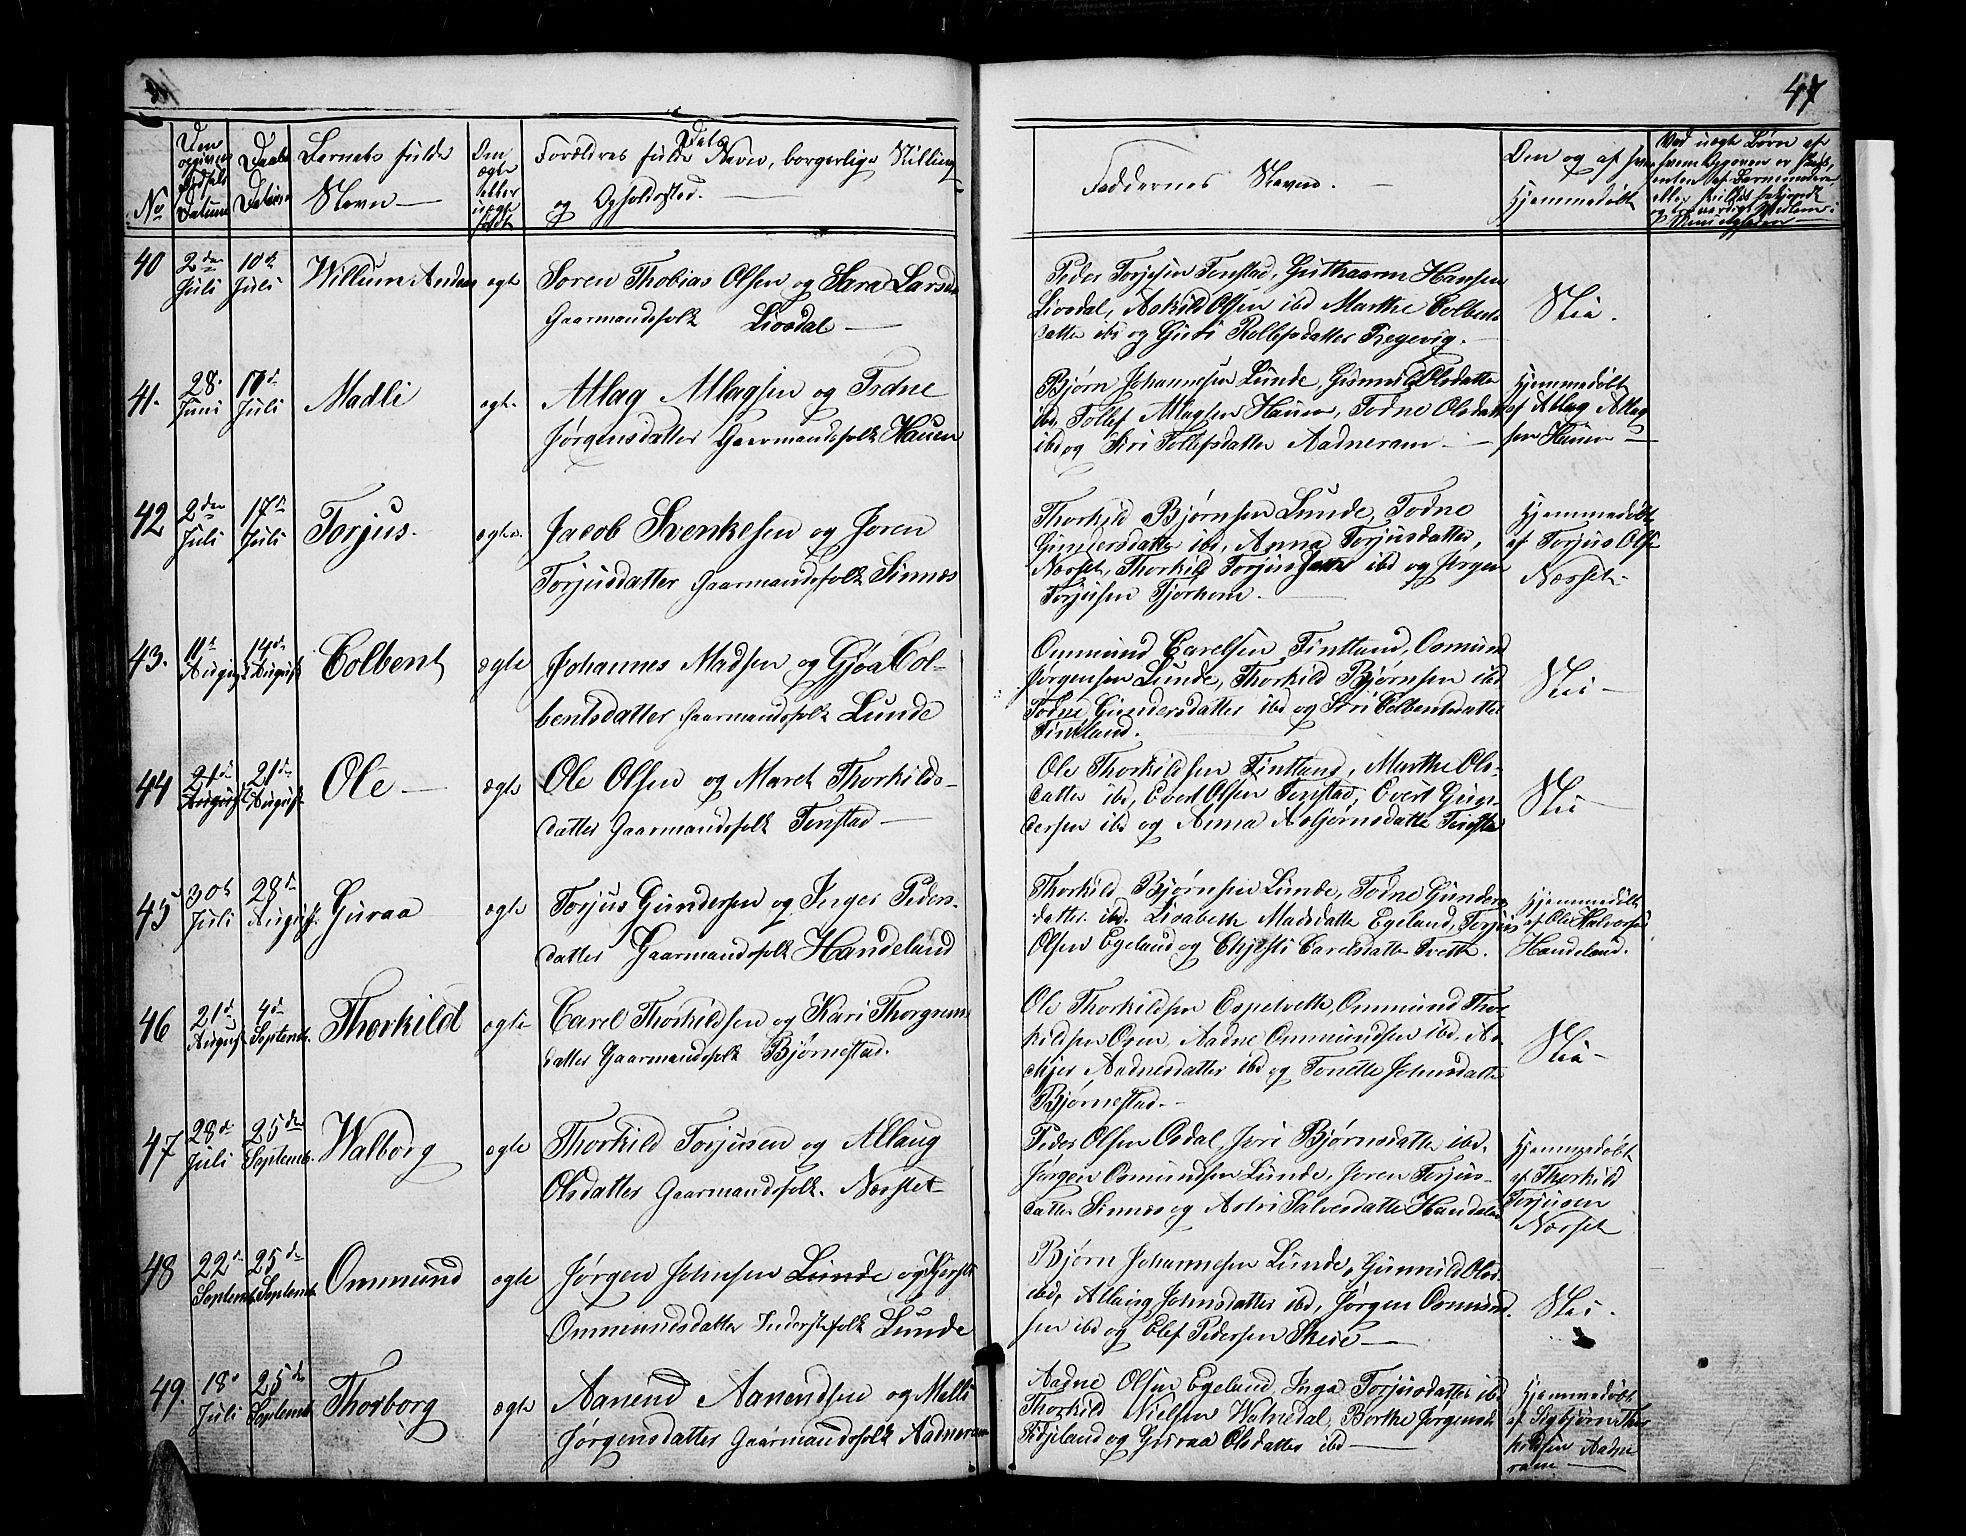 47
No
Den opgivne Fødsels Datum
Daabs Datum
Barnets fulde
Navn
Om ægte eller uægte født
Forældres fulde Navn, borgerlige Stilling
og Opholdssted.
Faddernes Navn.
Om og af hvem
Hjemmedøbt
40 2den Juli 10de Juli Willum Anders ægte Søren Thobias Olsen og Sara Larsd
Gaarmandsfolk Liosdal
Peder Torjesen Tonstad, Guthaarm Hansen
Liosdal, Askild Olsen ibd Marthe Colbents
datter ibd og Guri Rollefsdatter Regevig.
Nei.
41. 28. Juni 17de Juli Madli ægte Atlag Atlagsen og Todne
Jørgensdatter Gaarmandsfolk Hauen
Bjørn Johannesen Lunde, Gunnild Olsdatter
ibd, Tollef Atlagsen Hauen, Todne Olsdatt
ibd og Siri Tollefsdatter Aadneram
Hjemmedøbt
af Atlag Atlag
sen Hauen
42 2den Juli 17de Juli Torjus. ægte Jacob Svenkesen og Joren
Torjusdatter Gaarmandsfolk Sinnes
Thorkild Bjørnsen Lunde, Todne
Gundersdatter ibd, Anna Torjusdatter,
Nærset, Thorkild Torjussen ibd og Jørgen
Torjusen Tjorhom.
Hjemmedøbt
af Torjus Olse
Nærset.
43. 11te August 14de August Colbent ægte Johannes Madsen og Gjøa Col-
bentsdatter Gaarmandsfolk Lunde
Ommund Carelsen Tintland, Osmund
Jørgensen Lunde, Thorkild Bjørnsen ibd
Todne Gundersdatter ibd og Siri Colbentsdatter
Tintland.
Nei
44 21de August 21de August Ole ægte Ole Olsen og Maret Thorkilds-
datter Gaarmandsfolk Tonstad
Ole Thorkildsen Tintland, Marthe Ols-
datter ibd, Evert Olsen Tonstad, Evert Gun-
dersen ibd og Anna Asbjørnsdatter Tonstad
Nei
45 30te Juli 28de August Guraa ægte Torjus Gundersen og Inger Peders-
datter Gaarmandsfolk Handeland
Thorkild Bjørnsen Lunde, Todne Gunders
datter ibd. Lisabeth Madsdatter Egeland, Torjus
Olsen Egeland og Chjesti Carelsdatter Tveth.
Hjemmedøbt
af Ole Halvorsen
Handeland.
46 21de August 4de Septemb. Thorkild ægte Carel Thorkildsen og Kari Thorgrims
datter Gaarmandsfolk Bjørnestad.
Ole Thorkildsen Espetveth, Ommund Thor-
kildsen Osen, Aadne Ommundsen ibd. As-
chjer Aadnesdatter ibd og Tonette Johnsdatter
Bjørnestad.
Nei
47 28de Juli 25de Septemb. Walborg ægte Thorkild Torjusen og Atlaug
Olsdatter Gaarmandsfolk. Nærset
Peder Olsen Osdal, Siri Bjørnsdatter ibd.
Jørgen Osmundsen Lunde, Joren Torjus-
datter Sinnes og Astri Salvesdatter Handeland
Hjemmedøbt
af Thorkild
Torjusen
Nærset
48 22de Septemb. 25de Septemb. Ommund ægte Jørgen Johnsen Lunde og Kjersti
Ommundsdatter Inderstefolk Lunde
Bjørn Johannesen Lunde, Gunnild Olsd
ibd, Atlaug Johnsdatter ibd, Jørgen Osmund
sen ibd og Elef Pedersen Skeie
Nei.
49. 18. Juli 25de Septemb. Thorborg ægte Aanend Aanendsen og Malli
Jørgensdatter Gaarmandsfolk Aadneram
Aadne Olsen Egeland, Inga Torjusdatter ibd
Thorkild Nielsen Watnedal, Borthe Jørgensd
Fidjeland og Guraa Olsdatter ibd
Hjemmedøbt
af Sigbjørn Thor
kildsen Aadne
ram